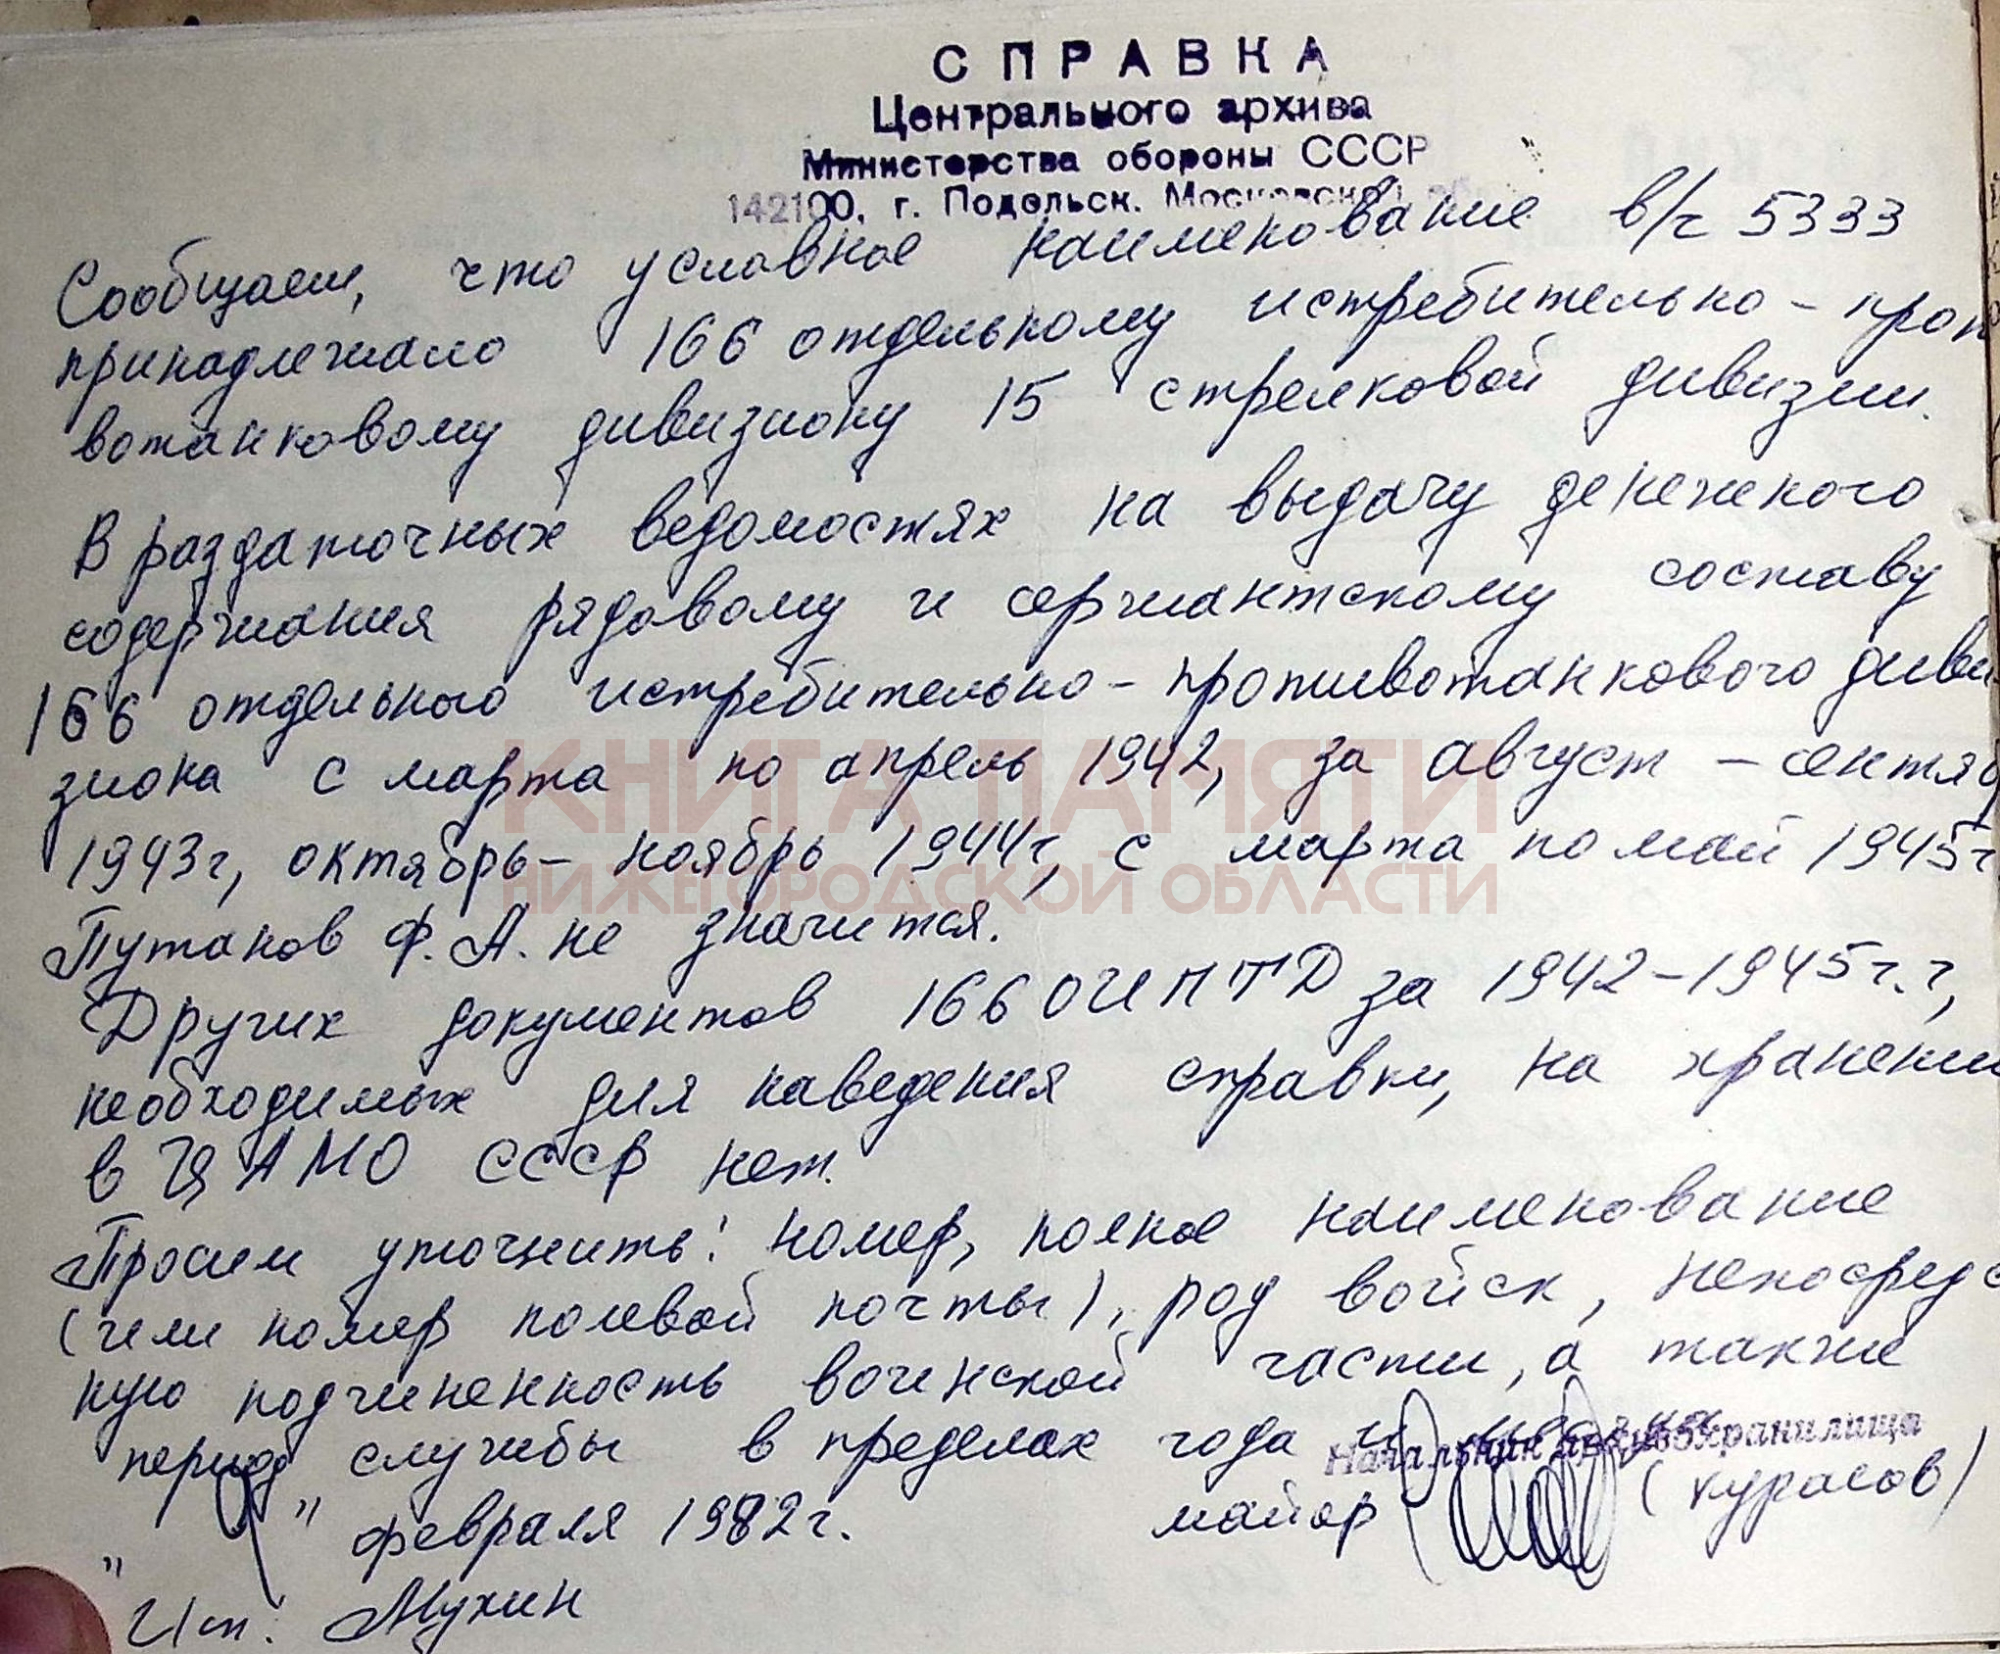 СПРАВКА
Центрального архива
Министерства обороны СССР
142100, г. Подольск, Московской
Сообщаем, что условное наименование в/ч 5333
принадлежало 166 отдельному истребительно-проти
вотанковому дивизиону 15 стрелковой дивизии.
В раздаточных ведомостях на выдачу денежного
содержания рядовому и сержантскому составу
166 отдельного истребительно-противотанкового диви
зиона с марта по апрель 1942, за август - сентяб
1943г, октябрь - ноябрь 1944г, с марта по май 1945г
Путанов Ф.А. не значится.
Других документов 166 ОИПТД за 1942-1945г.г,
необходимых для наведения справки, на хранении
в ЦАМО СССР нет.
Просим уточнить: номер, полное наименование
(или номер полевой почты), род войск, непосредс
ную подчиненность воинской части, а также
период службы в пределах года и
Начальник архивохранилища
" " февраля 1982г. майор (Курасов)
Исп: Мухин
КНИГА ПАМЯТИ
НИЖЕГОРОДСКОЙ ОБЛАСТИ